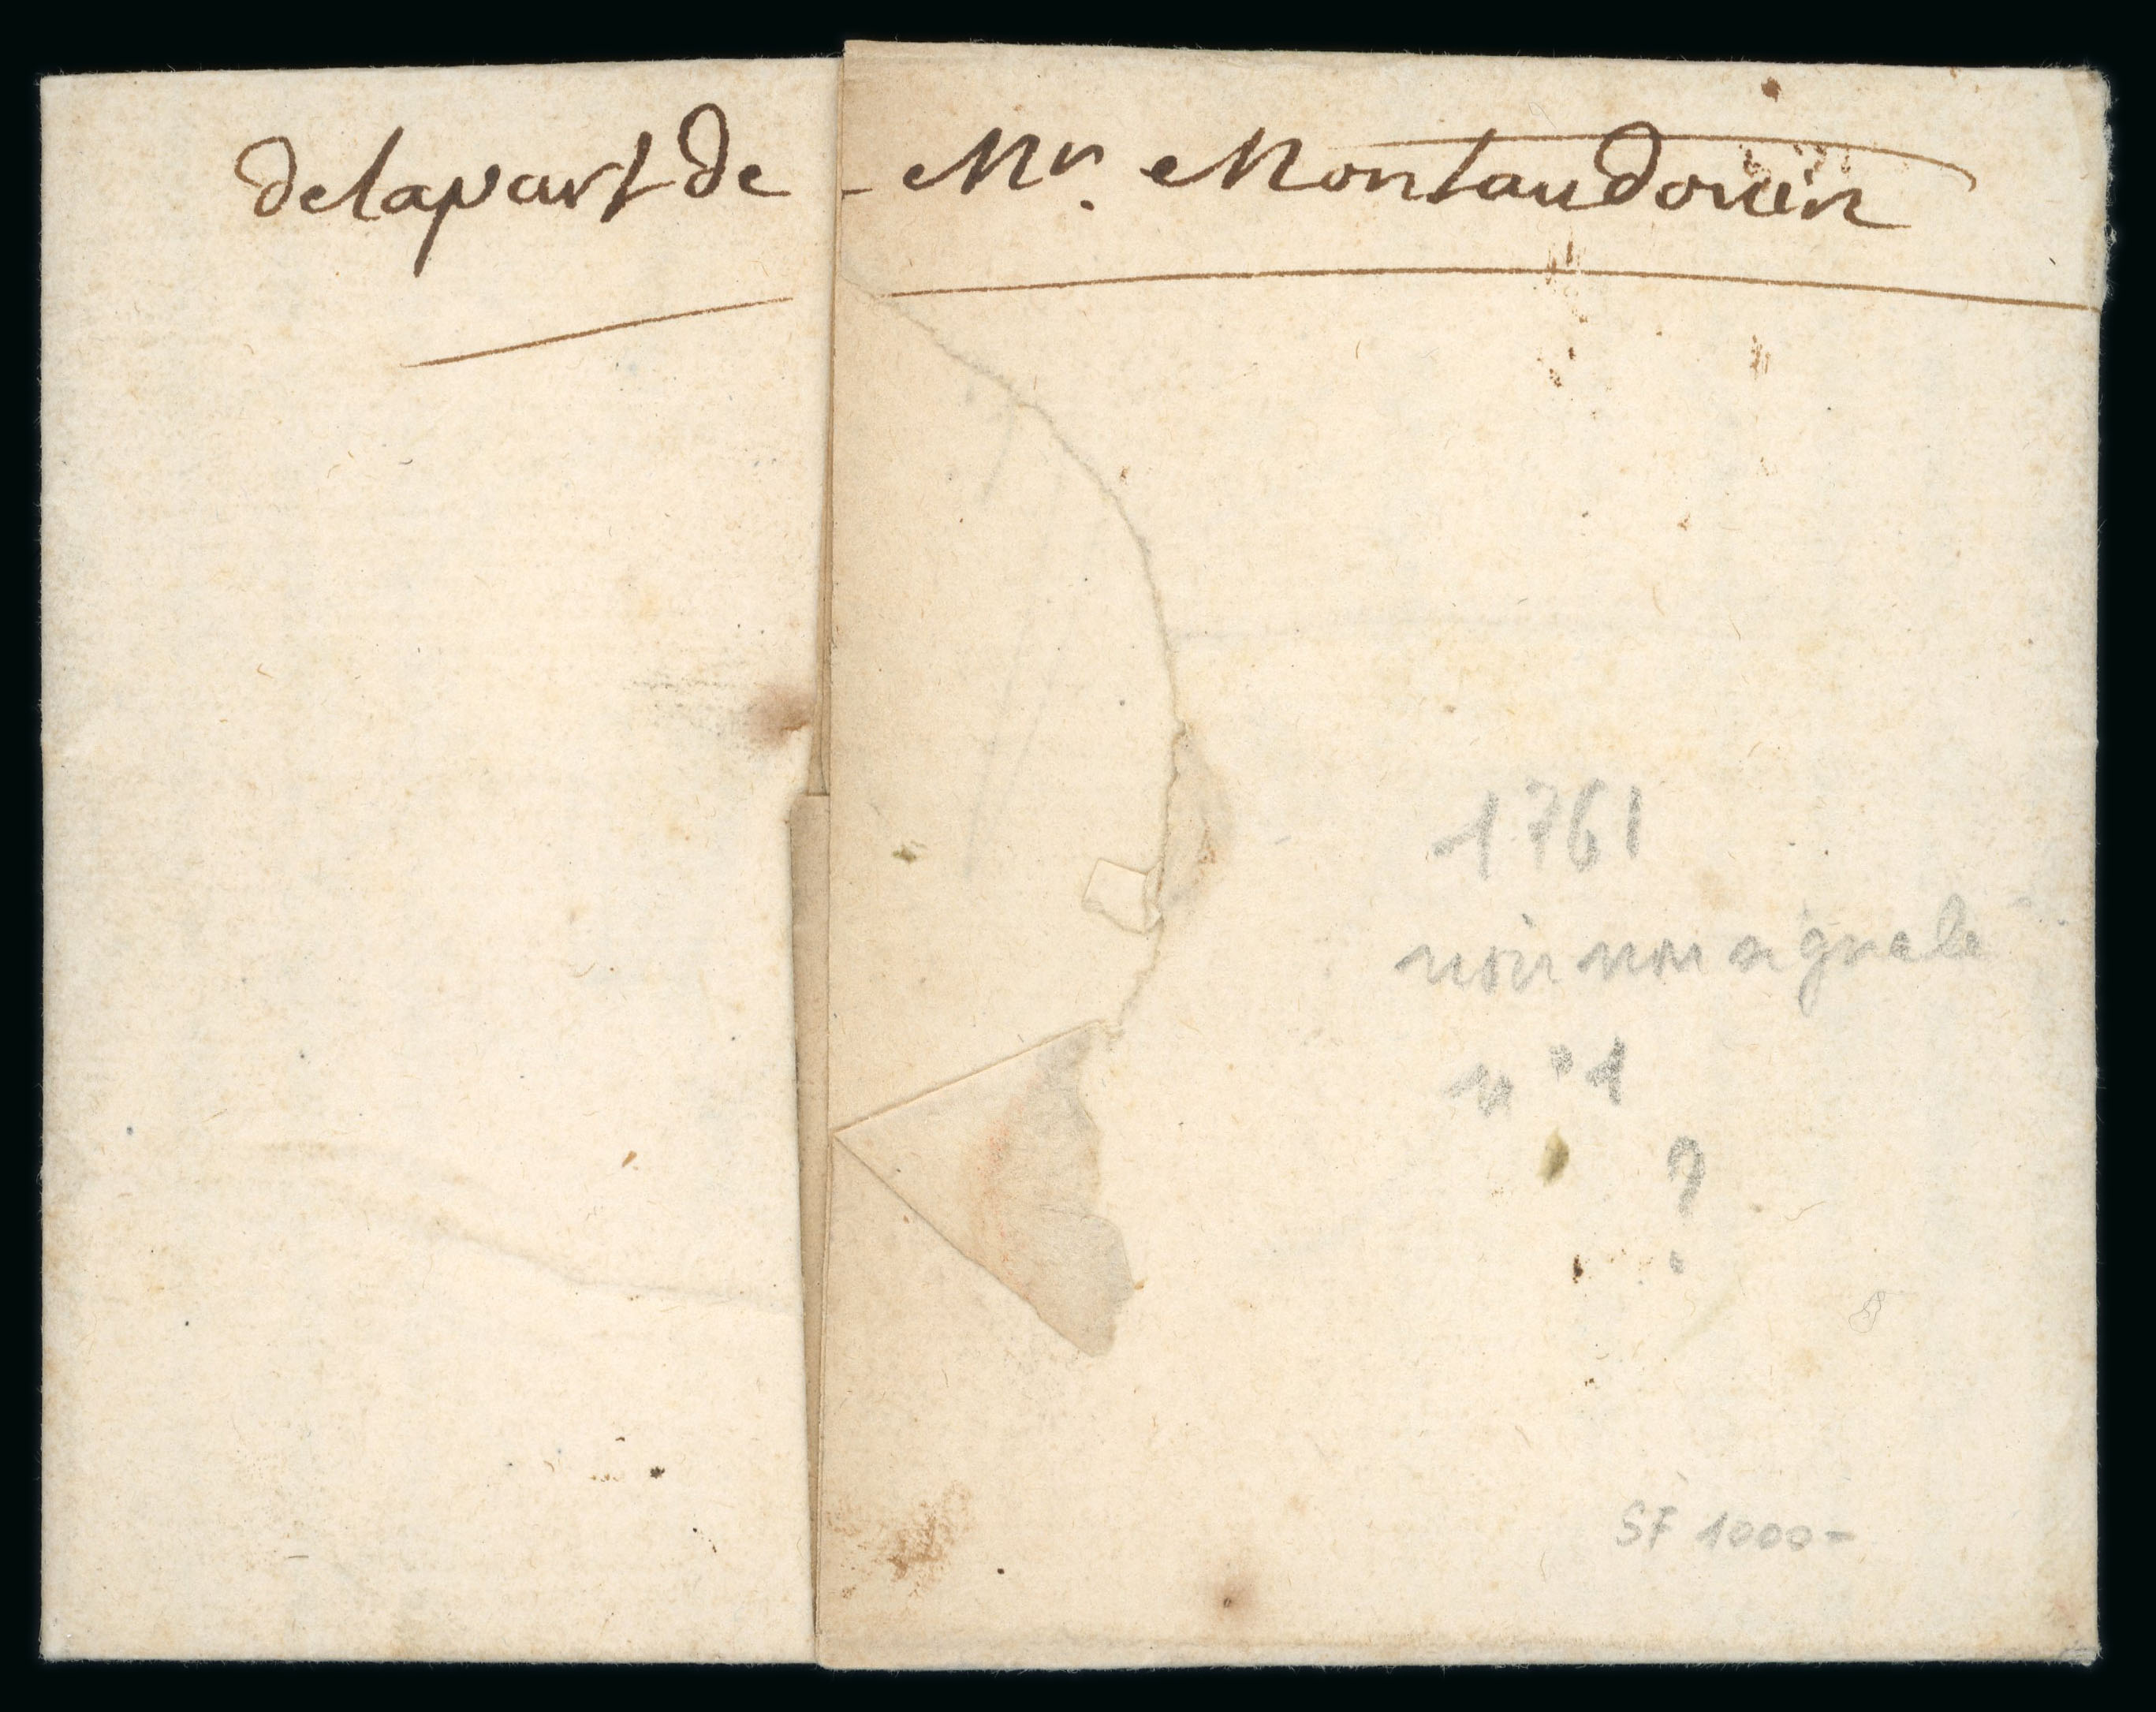 delapart de - Mr. Montaudouin
1761
noir non signalé
n° 1
?
SF 1000-